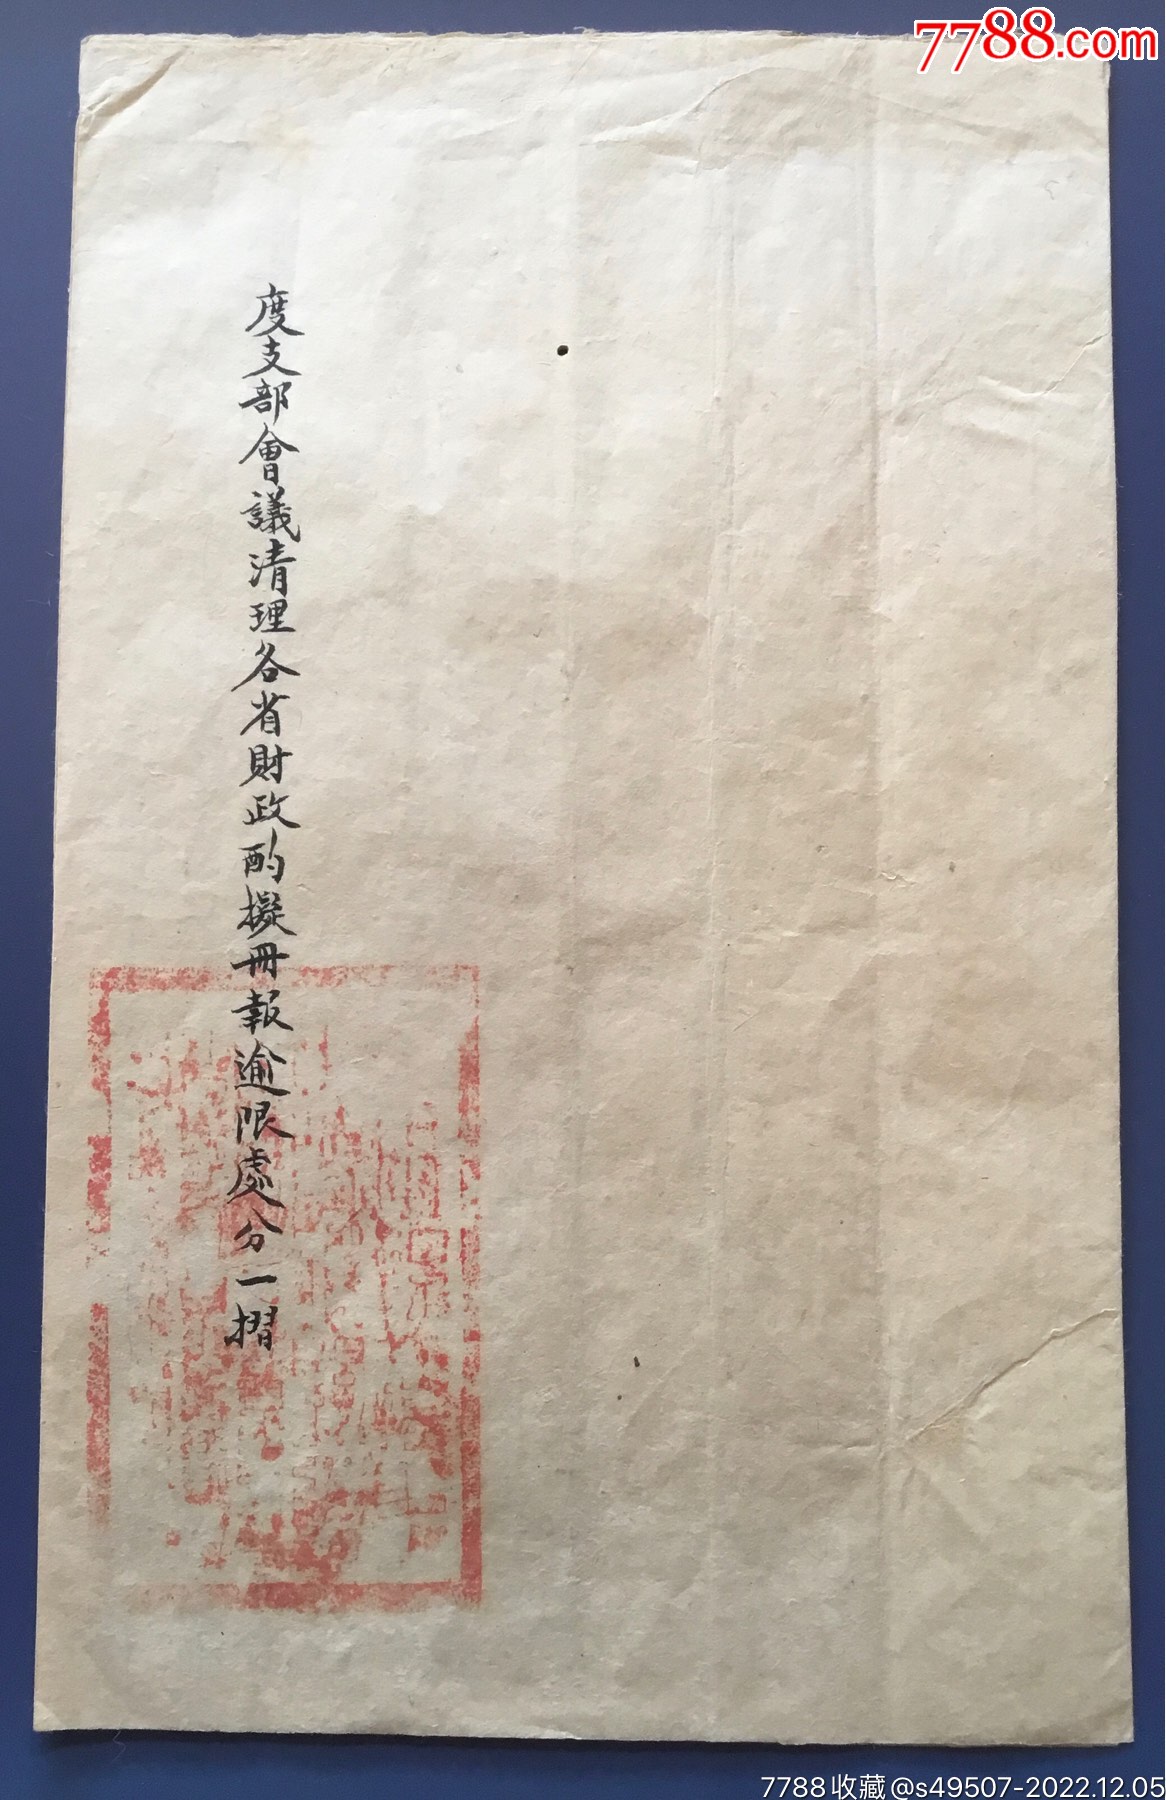 7788.com
度支部會議清理各省財政酌擬冊報逾限處分一摺
7788收藏@s49507-2022.12.05